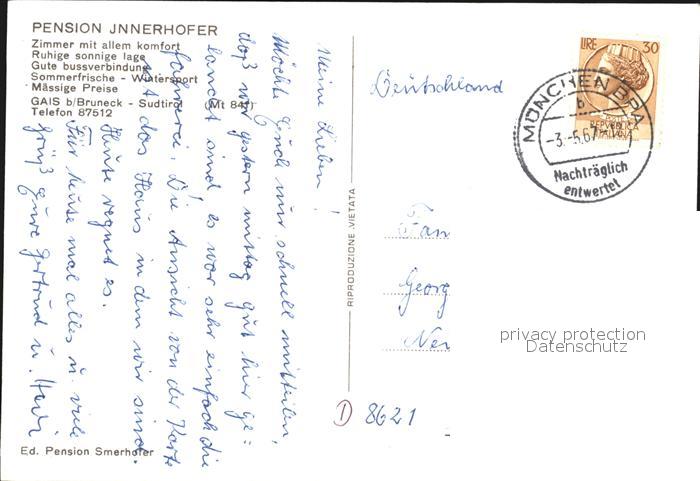 PENSION JNNERHOFER
Zimmer mit allem komfort
Ruhige sonnige lage
Gute bussverbindung
Sommerfrische - Wintersport
Mässige Preise
GAIS b/Bruneck - Sudtirol (Mt 841)
Telefon 87512
Meine Lieben!
Möchte Euch nur schnell mitteilen,
daß wir gestern mittag gut hier ge=
landet sind, es war sehr einfach die
Fahrerei. Die Ansicht von der Karte
ist das Haus in dem wir sind.
Heute regnet es.
Für heute mal alles u. viele
Grüß Eure Gertrud u.
Ed. Pension Smerhofer
RIPRODUZIONE VIETATA
Deutschland
LIRE 30
POSTE
REPVBBLICA
ITALIANA
MÜNCHEN BPA
b
-3.-5.67
Nachträglich
entwertet
Fam
Georg
D 8621
privacy protection
Datenschutz